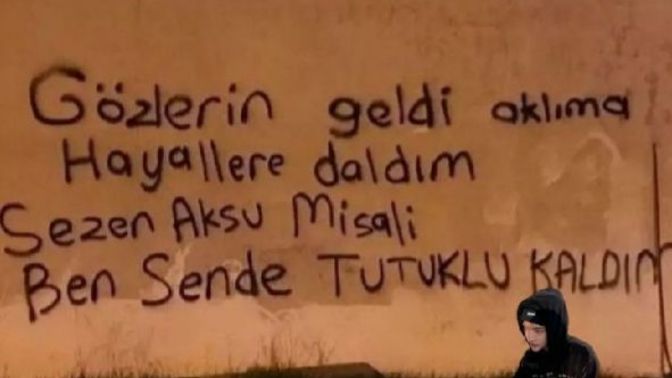 Gözlerin geldi aklıma
Hayallere daldım
Sezen AKSU Misali
Ben Sende TUTUKLU KALDIM